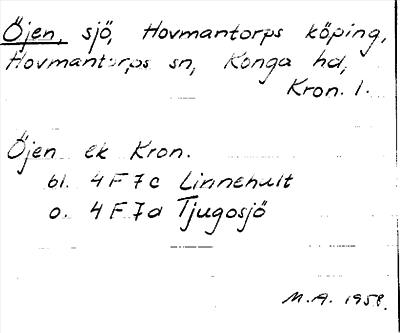 Öjen, sjö, Hovmantorps köping,
Hovmantorps sn, Konga hd,
Kron. l.
Öjen ek Kron.
bl. 4F7c Linnehult
o. 4F7d Tjugosjö
M.A. 1958.